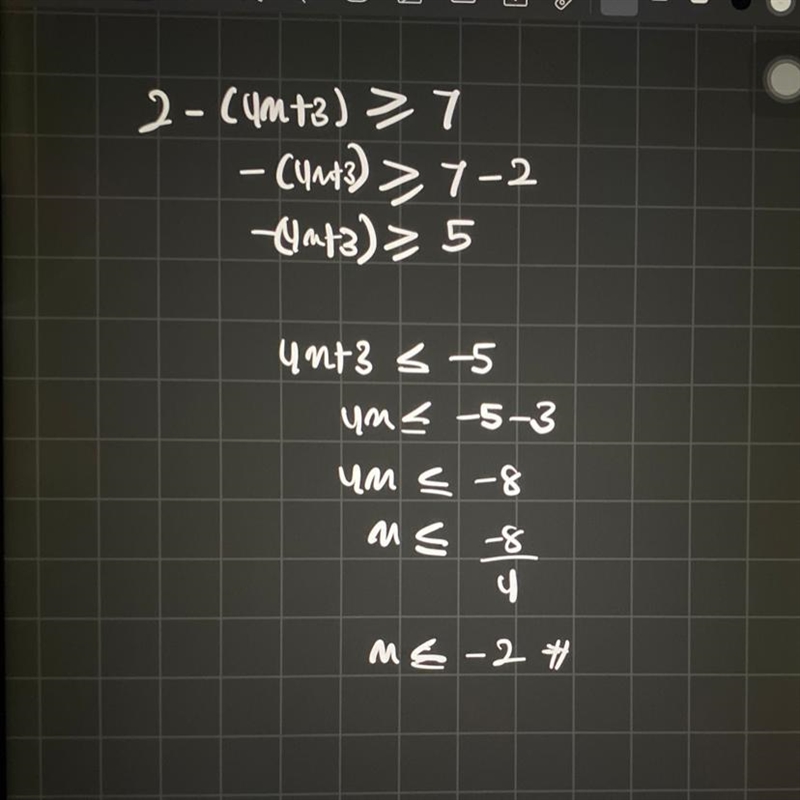 2 - (4m+3) ≥ 7
-(4m+3) ≥ 7 - 2
-(4m+3) ≥ 5
4m+3 ≤ -5
4m ≤ -5-3
4m ≤ -8
m ≤ -8/4
m ≤ -2 #